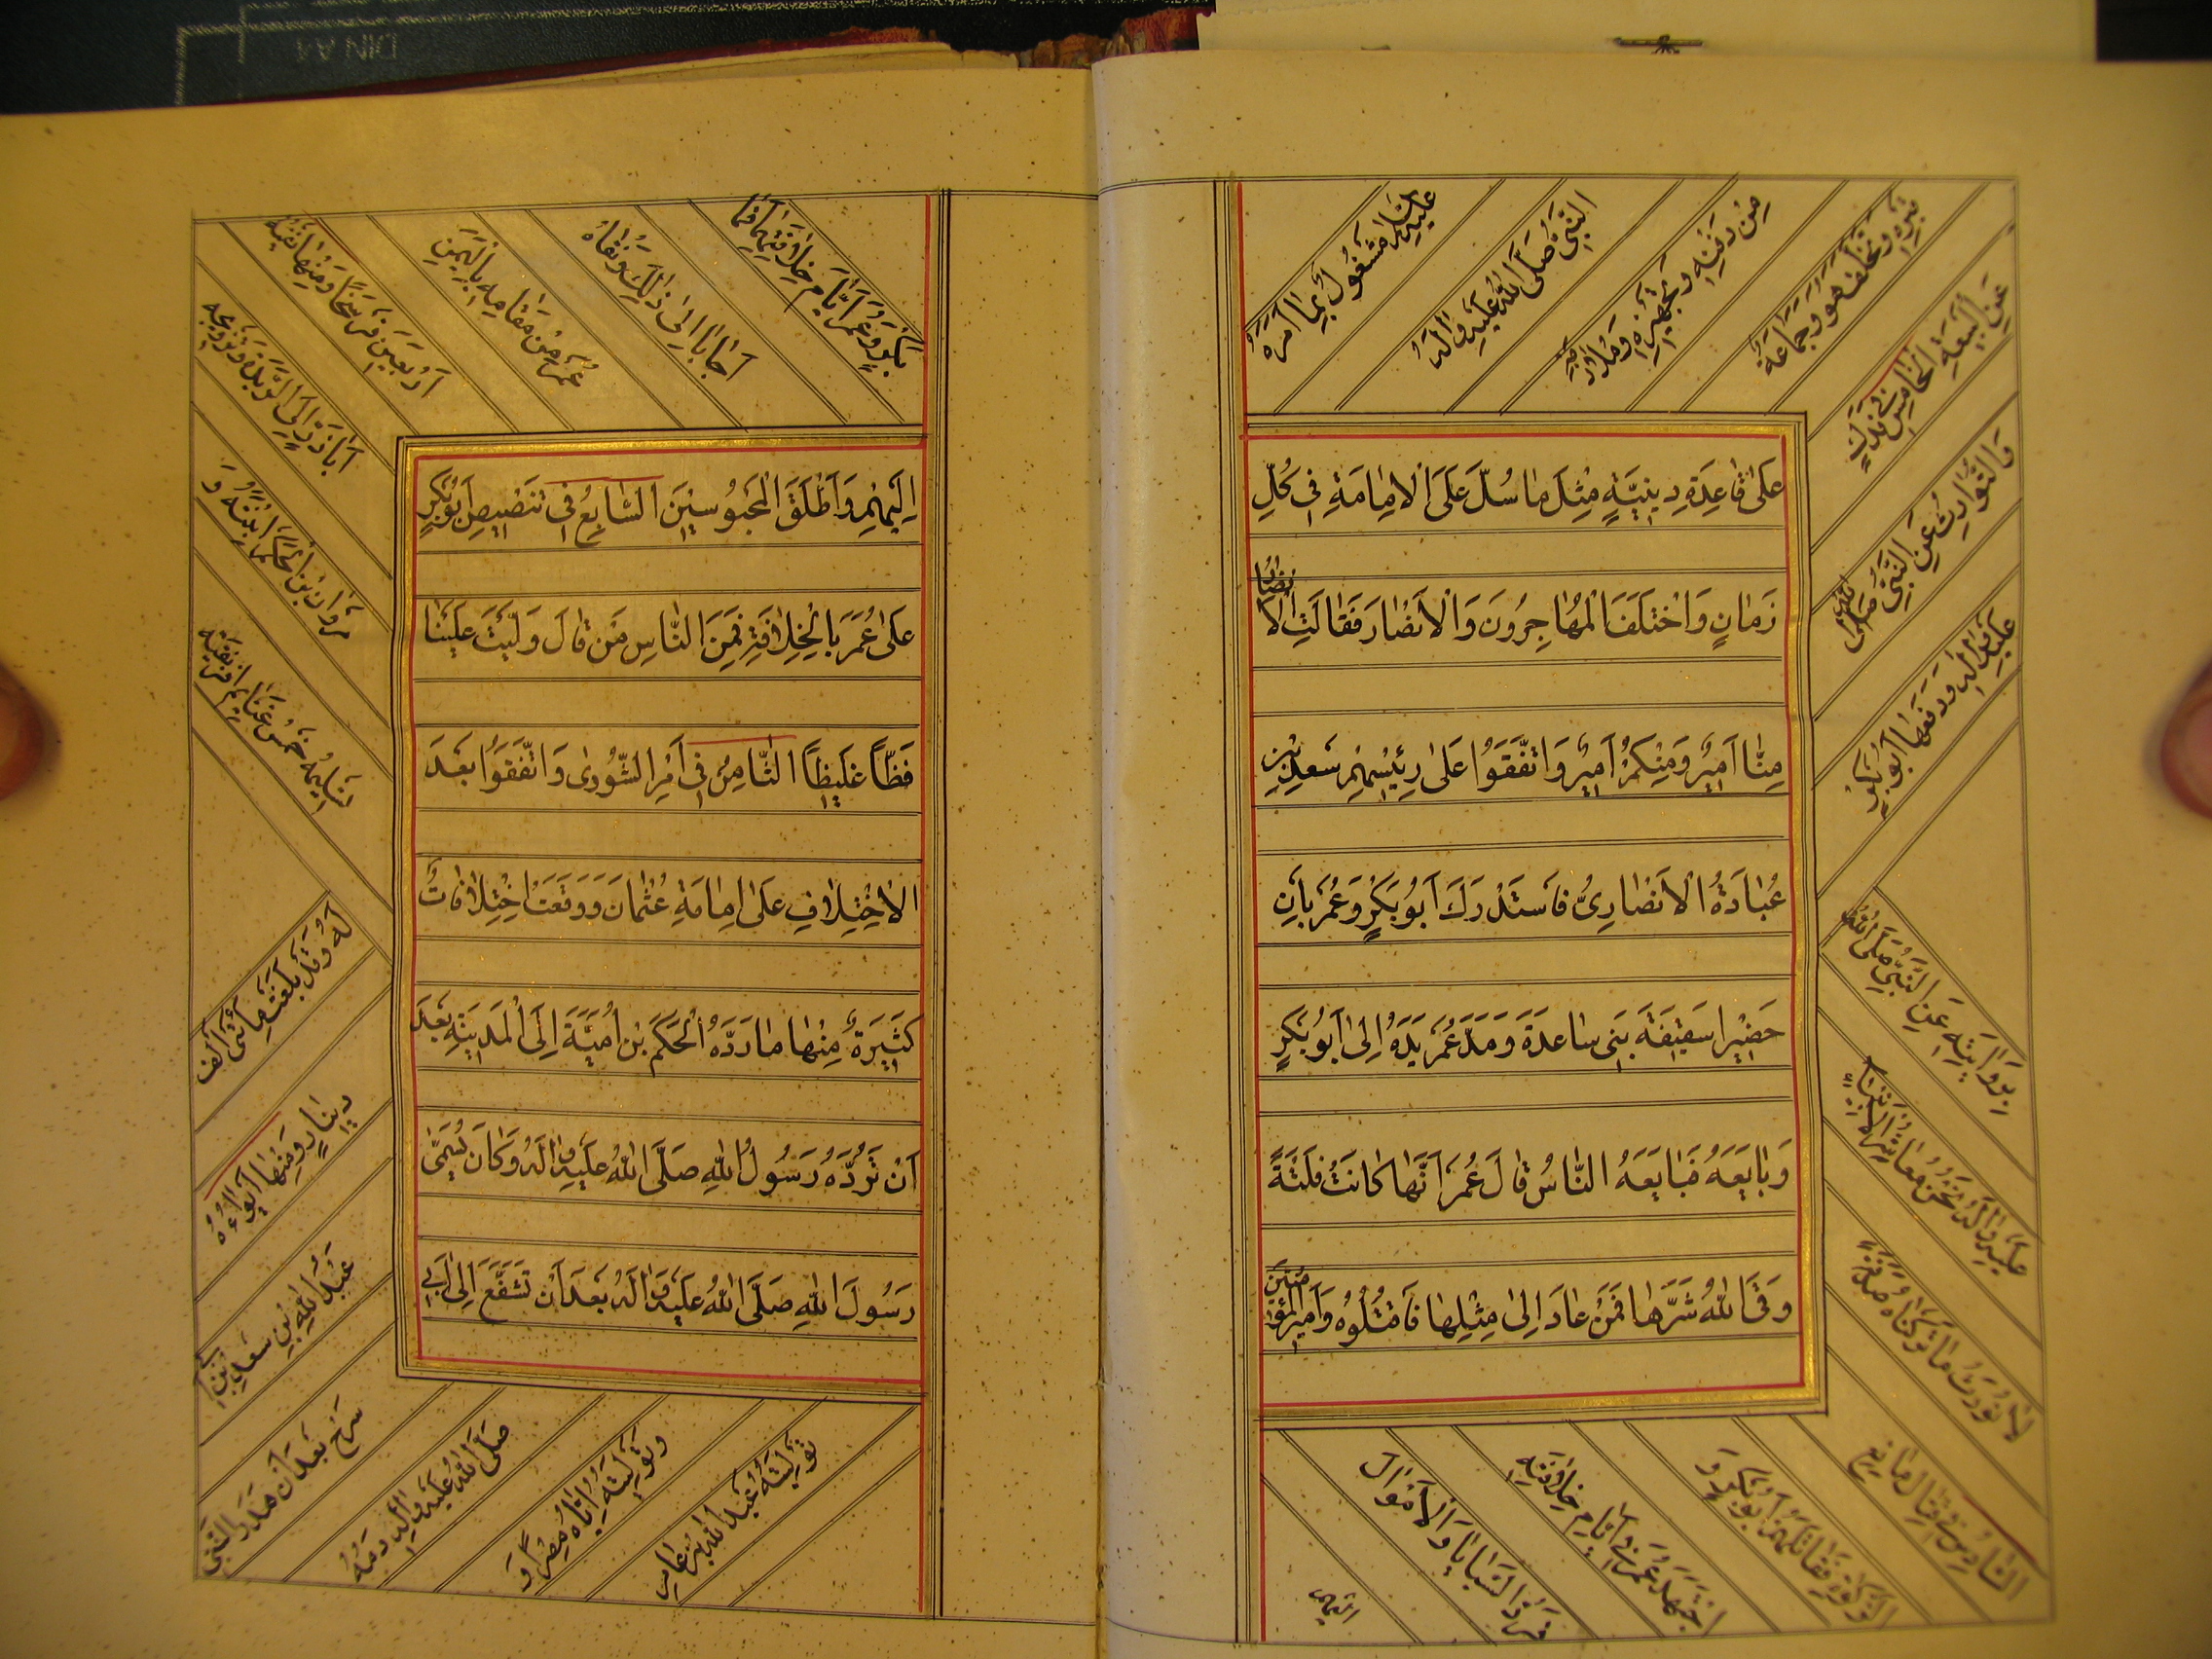 عَلىٰ قاعِدَةٍ دينِيَّةٍ مِثْلَ ما سُلَّ عَلَى الْاِمامَةِ فى كُلِّ
زَمانٍ وَاخْتَلَفَ الْمُهاجِرُونَ وَالْاَنْصارَ فَقالَتِ الْاَنْصارُ
مِنّا اَميرٌ وَمِنْكُمْ اَميرٌ وَاتَّفَقَوُا عَلىٰ رَئيسِهِمْ سَعْدِ بْنِ
عُبادَةُ الْاَنْصارِىُّ فَاسْتَدْرَكَ اَبُوبَكْرٍ وَعُمَرَ بِاَنِ
حَضَيْرا سَقيفَةَ بَنى ساعِدَةَ وَمَدَّ عُمَرَ يَدَهُ اِلىٰ اَبُوبَكْرٍ
وَبايَعَهُ فَبايَعَهُ النّاسُ قالَ عُمَرَ اَنَّها كانَتْ فَلْتَةً
وَقَى اللهُ شَرَّها فَمَنْ عادَ اِلىٰ مِثْلِها فَاقْتُلُوهُ وَاَميرُ الْمُؤْمِنينَ
عَلَيْهِ السَّلامُ مَشْغُولٌ بِما اَمَرَهُ
النَّبِىُّ صَلَّى اللهُ عَلَيْهِ وَالِهِ
مِنْ دَفْنِهِ وَتَجْهيزِهِ وَمُلازَمَةِ
قَبْرِهِ وَتَخَلَّفَ هُوَ وَجَماعَةٌ
عَنِ الْبَيْعَةِ الْخامِسُ فى فَدَكٍ
وَالتَّوارُثِ عَنِ النَّبِىِّ صَلَّى اللهُ
عَلَيْهِ وَالِهِ وَدَفَعَها اَبُوبَكْرٍ
بِرِوايَتِهِ عَنِ النَّبِىِّ صَلَّى اللهُ
عَلَيْهِ وَالِهِ نَحْنُ مَعاشِرَ الْاَنْبِياءِ
لا نُوَرِّثُ ما تَرَكْناهُ صَدَقَةٌ
السّادِسُ فى قِتالِ مانِعِى
الزَّكوٰةِ فَقاتَلَهُمْ اَبُوبَكْرٍ وَ
اجْتَهَدَ عُمَرَ فى اَيّامِ خِلافَتِهِ
فَرَدَّ السَّبايا وَالْاَمْوالَ
اِلَيْهِمْ وَاَطْلَقَ الْمَحْبُوسينَ السّابِعُ فى تَنْصيصِ اَبُوبَكْرٍ
عَلىٰ عُمَرَ بِالْخِلافَةِ فَمِنَ النّاسِ مَنْ قالَ وَلَّيْتَ عَلَيْنا
فَظّاً غَليظاً الثّامِنُ فى اَمْرِ الشُّورىٰ وَاتَّفَقَوُا بَعْدَ
الْاِخْتِلافِ عَلىٰ اِمامَةِ عُثْمانَ وَوَقَعَتْ اخْتِلافاتٌ
كَثيرَةٌ مِنْها ما رَدَّهُ الْحَكَمَ بْنِ اُمَيَّةَ اِلَى الْمَدينَةِ بَعْدَ
اَنْ تَرُدَّهُ رَسُولُ اللهِ صَلَّى اللهُ عَلَيْهِ وَالِهِ وَكانَ يُسَمّىٰ
رَسُولَ اللهِ صَلَّى اللهُ عَلَيْهِ وَالِهِ بَعْدَ اَنْ تَشَفَّعَ اِلىٰ اَبى
بَكْرٍ وَعُمَرَ اَيّامَ خِلافَتِهِما فَما
اَجابا اِلىٰ ذٰلِكَ وَنَفاهُ
عُمَرُ مِنْ مَقامِهِ بِالْيَمَنِ
اَرْبَعينَ فَرْسَخاً وَمِنْها نَفْيُهُ
اَباذَرٍّ اِلَى الرَّبَذَةِ وَتَزْويجُهُ
مَرْوانَ بْنَ الْحَكَمِ ابْنَتَهُ وَ
تَسْليمُهُ خُمْسَ غَنايِمِ اِفْريقِيَّةِ
لَهُ وَقَدْ بَلَغَتْ مِائَتَىْ اَلْفِ
دينارٍ وَمِنْها ايواؤُهُ
عَبْدَ اللهِ بْنِ سَعْدِ بْنِ اَبى
سَرْحٍ بَعْدَ اَنْ هَدَرَ النَّبِىُّ
صَلَّى اللهُ عَلَيْهِ وَالِهِ دَمَهُ
وَتَوْلِيَتُهُ اِيّاهُ مِصْراً وَ
تَوْلِيَتُهُ عَبْدَ اللهِ بْنِ عامِرِ